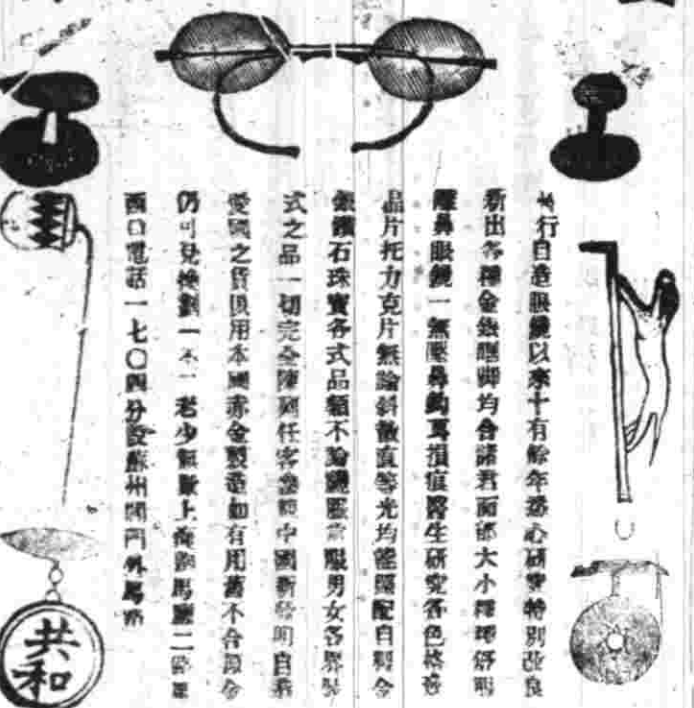 行自造眼鏡以來十有餘年悉心研究特別改良
新出各種金銀腿脚均合諸君面部大小
鼻眼鏡一無壓鼻鈎耳損痕醫生研究各色
晶片托力克片無論斜散直等光均能配自
鑽石珠寶各式品類不論男女各界
式之品一切完全陳列任客中國新發明自
愛國之貨俱用本國赤金製造如有用舊不合
仍可兌換劃一不二老少無欺上海跑馬廳二
西口電話一七〇四分設蘇州閶門外馬路
共和